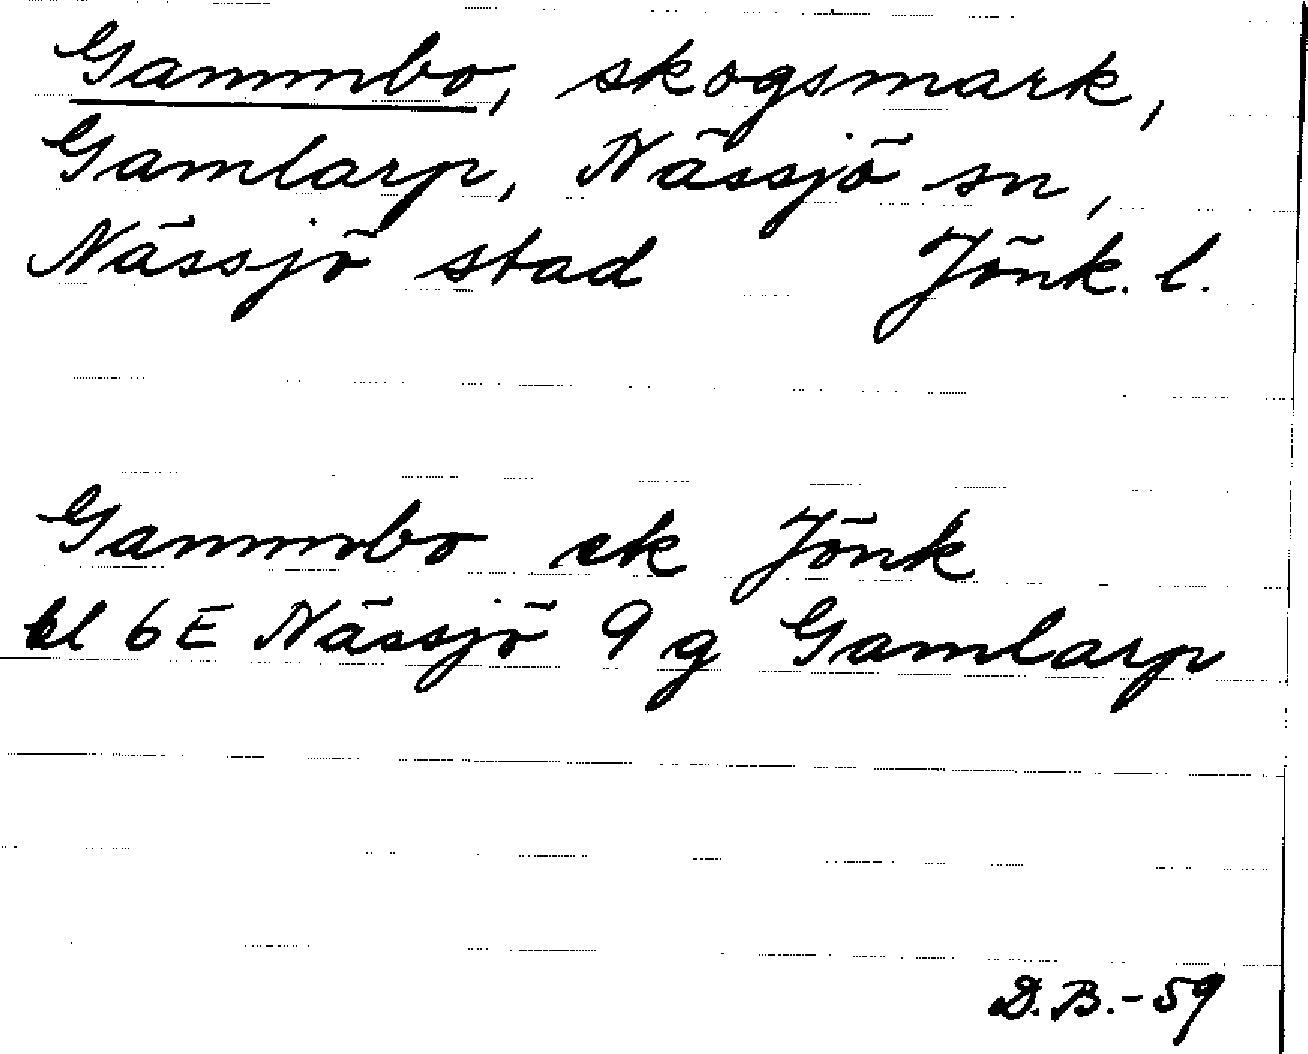 Gammbo, skogsmark,
Gamlarp, Nässjö sn,
Nässjö stad Jönk. l.
Gammbo ek Jönk
bl 6E Nässjö 9 g Gamlarp
D.B.-59